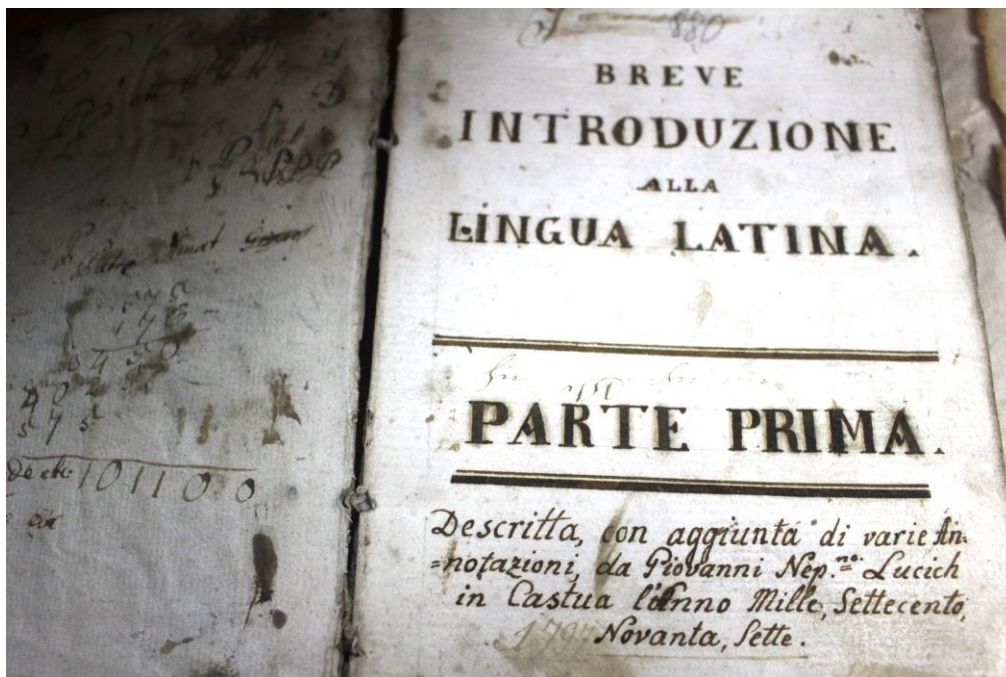 575
176
3450
402
575
101100
880
BREVE
INTRODUZIONE
ALLA
LINGUA LATINA.
PARTE PRIMA.
Descritta, con aggiunta di varie An=
=notazioni, da Giovanni Nep.no Lucich
in Castua l'Anno Mille, Settecento,
Novanta, Sette.
1797